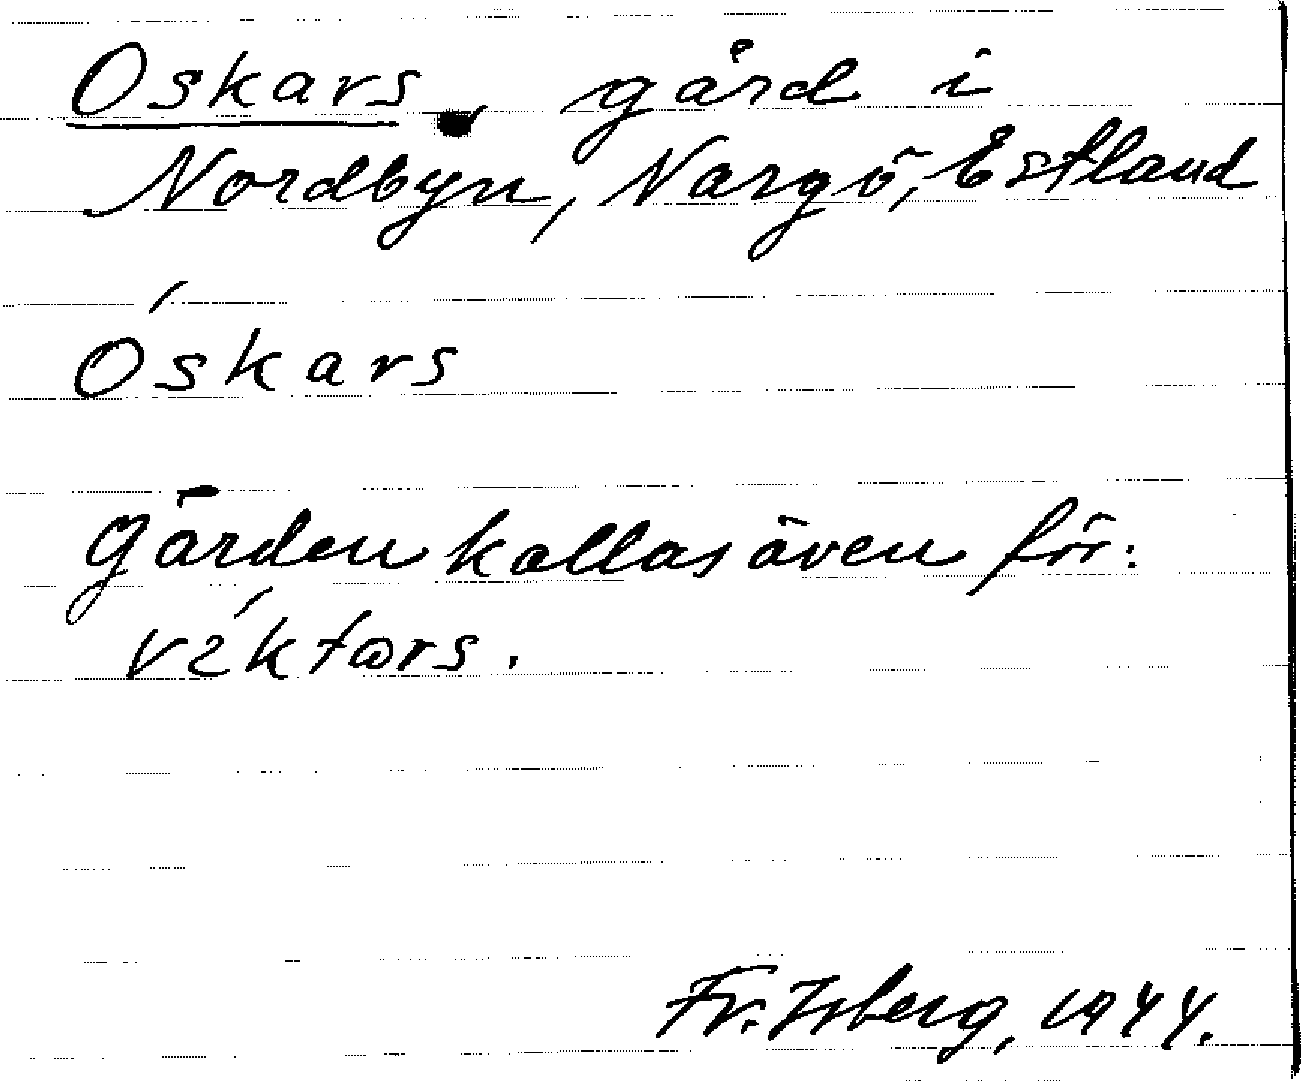 Oskars, gård i
Nordbyn, Nargö, Estland
Óskars
Gården kallas även för:
víktors.
Fr. Isberg, 1944.